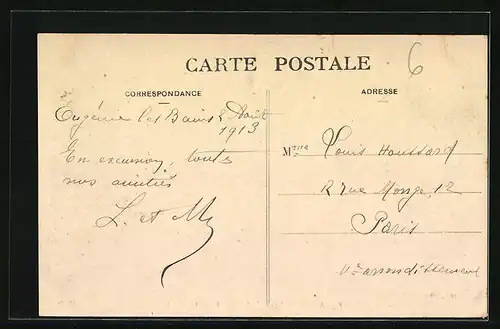 CARTE POSTALE
6
CORRESPONDANCE
ADRESSE
Eugénie les Bains 2 Août
1913
En excursion, toutes
nos amitiés
L. et M
Mme Louis Houssard
R rue Monge, 12
Paris
Ve arrondissement